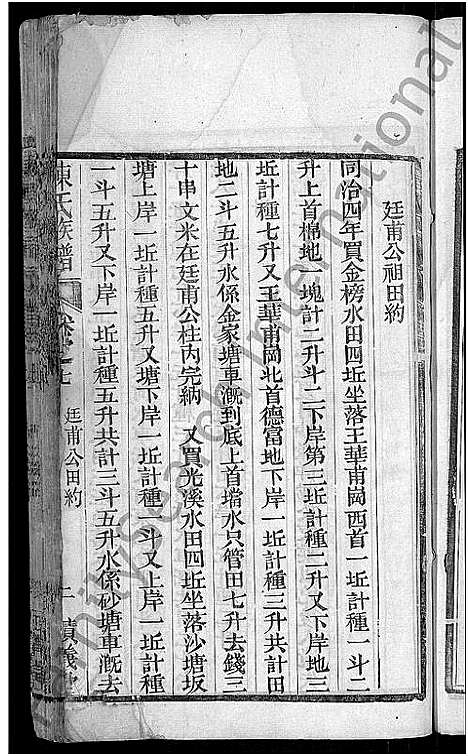 廷甫公祖田約
同治四年買金榜水田四坵坐落王華甫崗西首一坵計種一斗二
升上首棉地一塊計二升斗二下岸第三坵計種二升又下岸地三
坵計種七升又王華甫崗北首德富地下岸一坵計種三升共計田
地二斗五升水係金家塘車溉到底上首壋水只管田七升去錢三
十串文米在廷甫公柱内完納 又買光溪水田四坵坐落沙塘坂
塘上岸一坵計種五升又塘下岸一坵計種一斗又上岸一坵計種
一斗五升又下岸一坵計種五升共計三斗五升水係砂塘車溉去
陳氏族譜 卷之七 廷甫公田約 二 積義堂
International